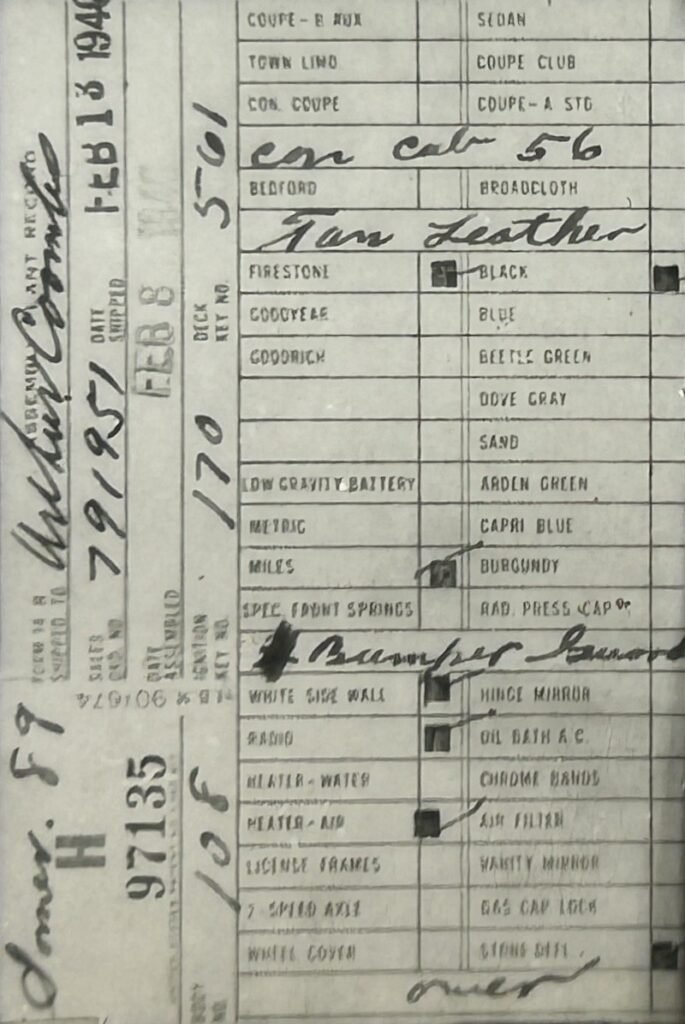 COUPE-B AUX SEDAN
TOWN LIMO COUPE CLUB
CON. COUPE COUPE-A STD
con cab 56
BEDFORD BROADCLOTH
Tan Leather
FIRESTONE BLACK
GOODYEAR BLUE
GOODRICH BEETLE GREEN
DOVE GRAY
SAND
LOW GRAVITY BATTERY ARDEN GREEN
METRIC CAPRI BLUE
MILES BURGUNDY
SPEC. FRONT SPRINGS RAD. PRESS CAP
Bumper Guard
WHITE SIDE WALL HINGE MIRROR
RADIO OIL BATH A.C.
HEATER-WATER CHROME BANDS
HEATER-AIR AIR FILTER
LICENSE FRAMES VANITY MIRROR
2 SPEED AXLE GAS CAP LOCK
WHITE COVER STONE DEFL.
over
Somer. 89
H
97135
BODY NO. 108
FORM 14 R ASSEMBLY PLANT RECORD
SHIPPED TO Arthur Coombs
SALES ORD. NO. 791951 DATE SHIPPED FEB 13 194
DATE ASSEMBLED FEB 8 194
IGNITION KEY NO. 170 DECK KEY NO. 561
901674